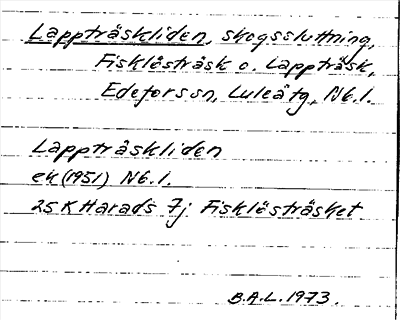 Lappträskliden, skogssluttning,
Fisklösträsk o. Lappträsk,
Edeforssn, Luleåtg, Nb.l.
Lappträskliden
ek (1951) Nb.l.
25 K Harads 7j Fisklösträsket
B.A.L. 1973.